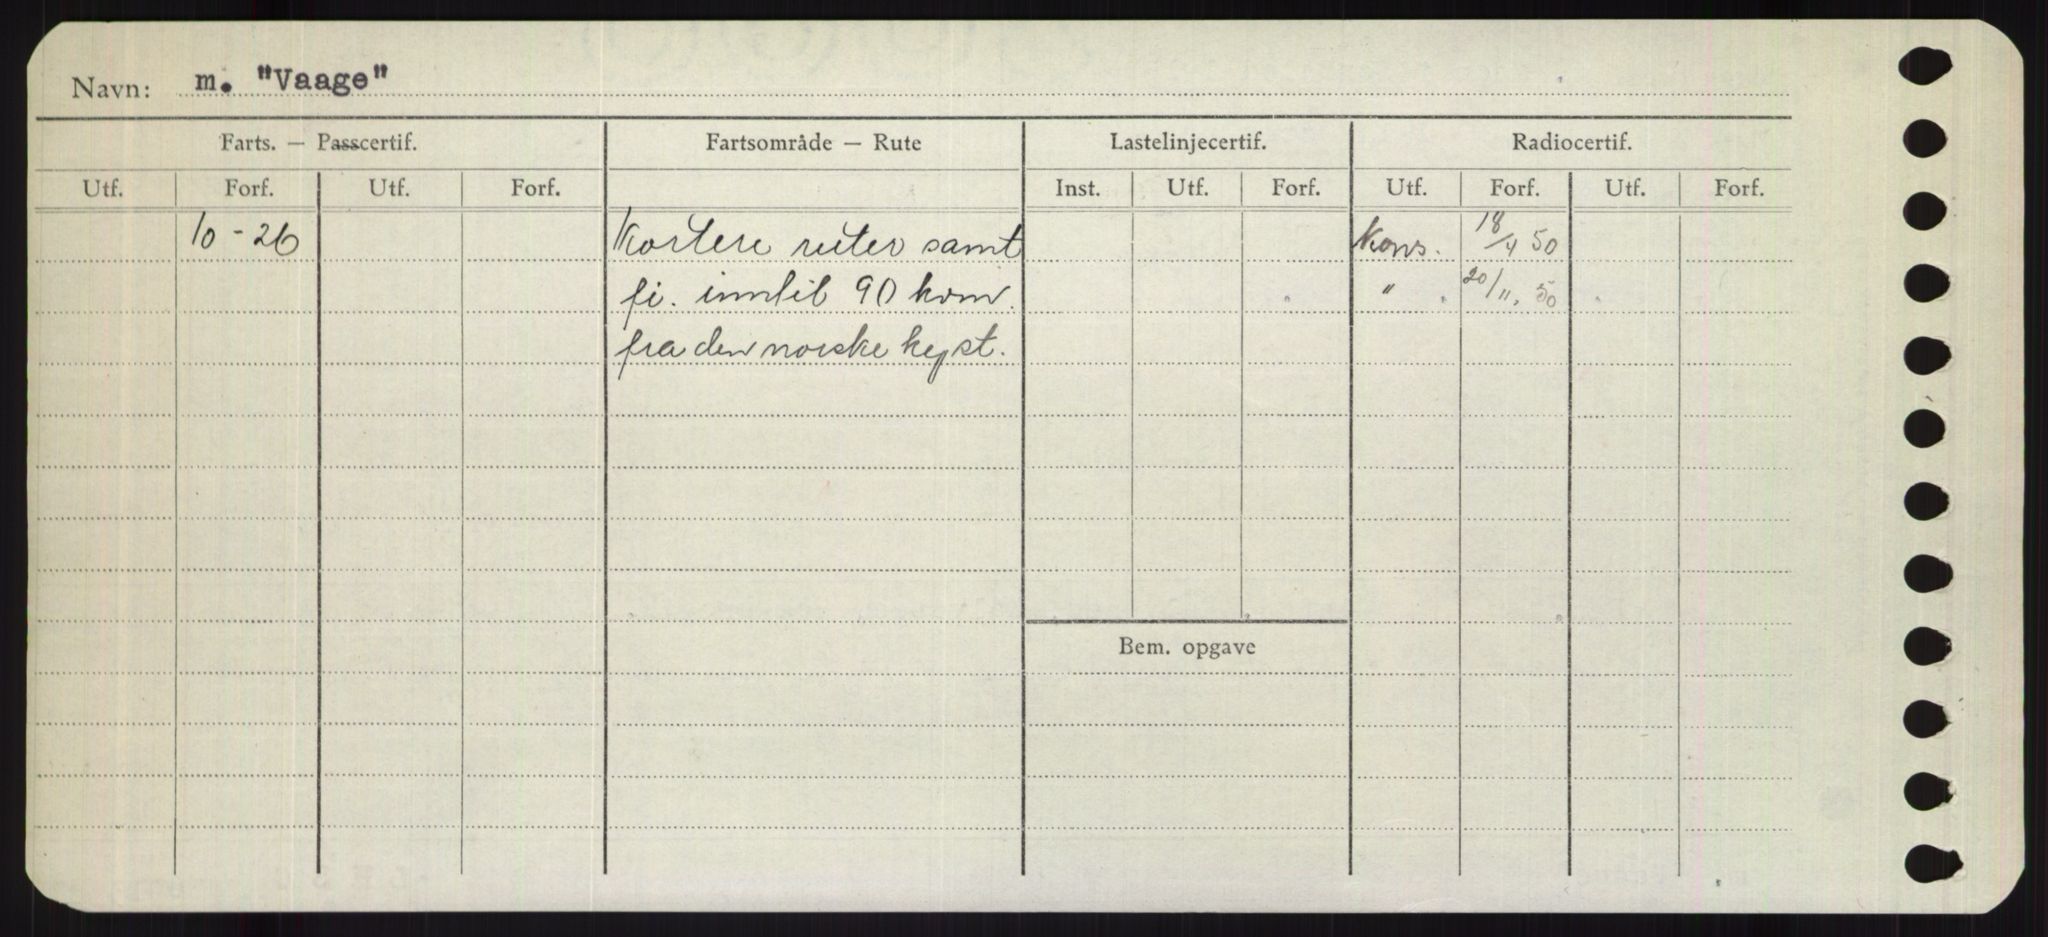 Navn: m. "Vaage"
Farts. — Passcertif. Fartsområde — Rute Lastelinjecertif. Radiocertif.
Utf. Forf. Utf. Forf. Inst. Utf. Forf. Utf. Forf. Utf. Forf.
10-26 Kortere ruter samt Kons. 18/4 50
fi. inntil 90 kvm. " 20/11. 50
fra den norske kyst.
Bem. opgave